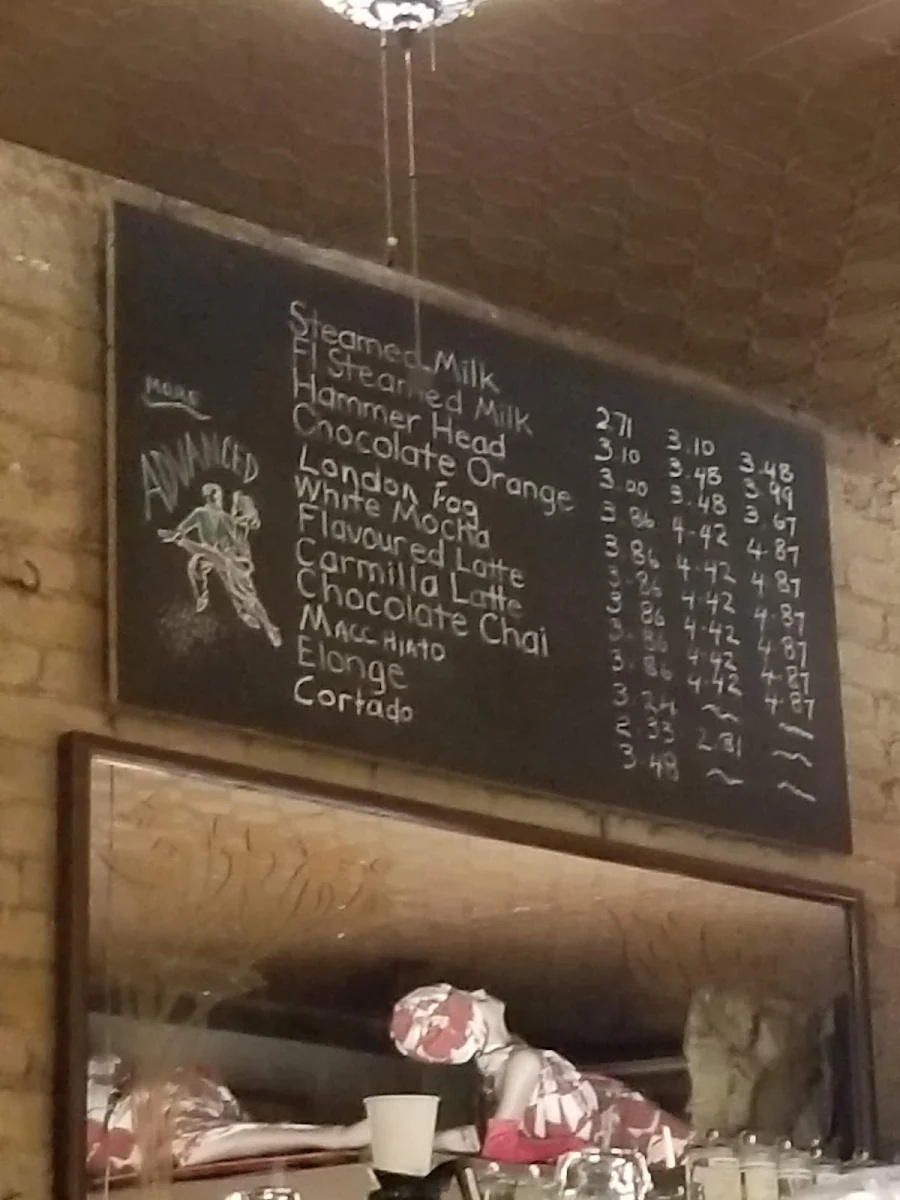 MORE
ADVANCED
Steamed Milk 271 3.10 3.48
Fl Steamed Milk 3.10 3.48 3.99
Hammer Head 3.00 3.48 3.67
Chocolate Orange 3.86 4.42 4.87
London Fog 3.86 4.42 4.87
White Mocha 3.86 4.42 4.87
Flavoured Latte 3.86 4.42 4.87
Carmilla Latte 3.86 4.42 4.87
Chocolate Chai 3.86 4.42 4.87
MACCHIATO 3.24 ~ ~
Elonge 2.33 2.81 ~
Cortado 3.48 ~ ~